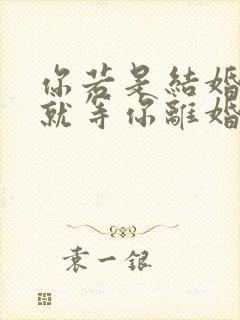 你若是結婚
就等你離婚
袁一銀